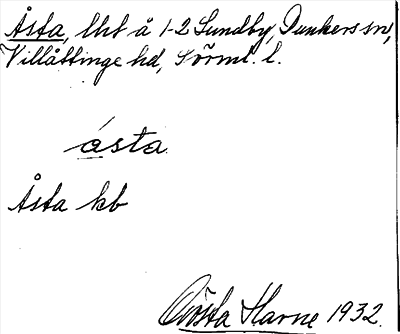 Åsta, lht å 1-2 Sundby, Dunkers sn,
Villåttinge hd, Sörml. l.
ásta
Åsta kb
Gösta Harne 1932.